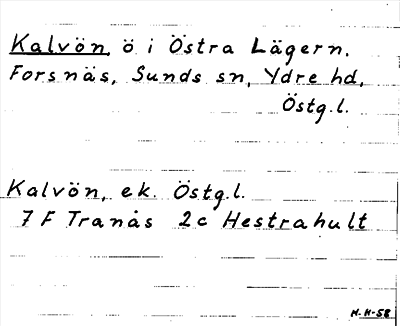 Kalvön, ö i Östra Lägern.
Forsnäs, Sunds sn, Ydre hd,
Östg.l.
Kalvön, ek. Östg.l.
7 F Tranås 2c Hestrahult
N.H-58